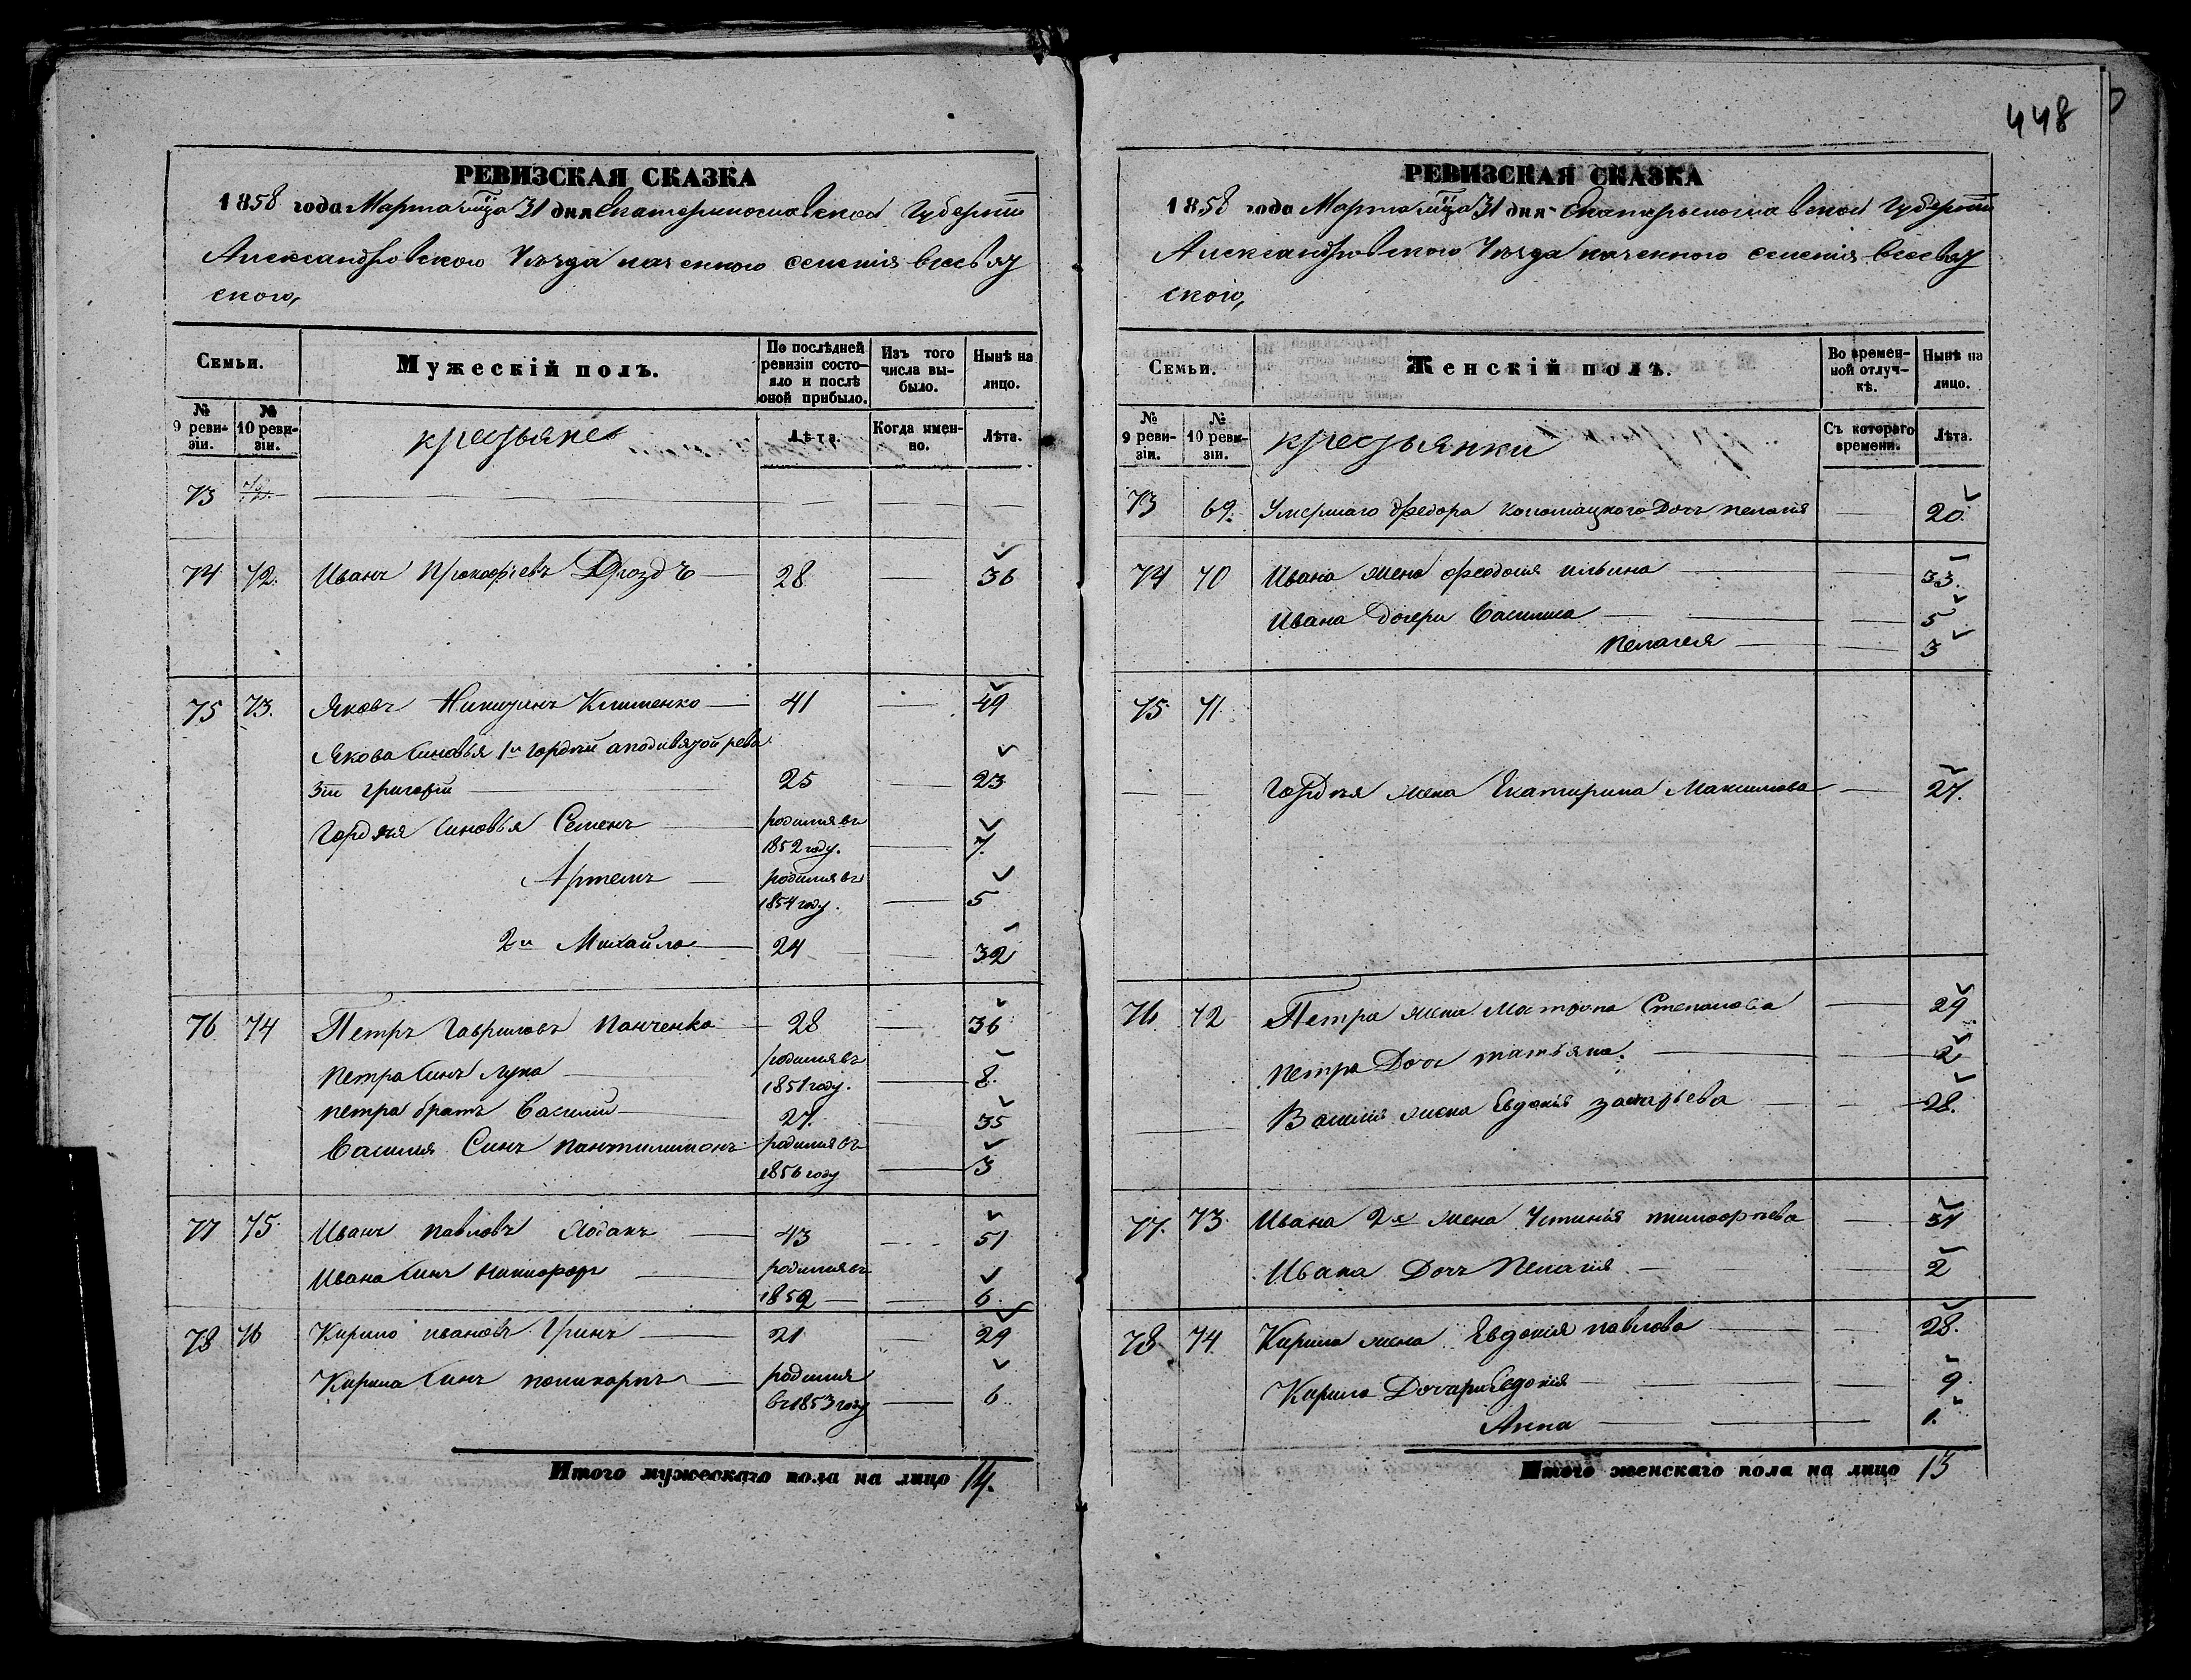 448
РЕВИЗСКАЯ СКАЗКА
1858 года Марта мца 31 дня Екатеринославской Губернiи
Александровского Уѣзда казенного селенiя Всесвяз
ского,
Семьи.
Мужескiй полъ.
По послѣдней ревизiи состояло и послѣ оной прибыло.
Изъ того числа выбыло.
Нынѣ на лицо.
№ 9 ревизiи.
№ 10 ревизiи.
крестьяне
Лѣта.
Когда именно.
Лѣта.
73 72. — — — —
74 72. Иванъ Прокофiевъ Дроздъ — 28 — 36
75 73. Яковъ Никитинъ Клименко — 41 — 49
Якова синовья 1й Гордѣй а по девятой реви
зiи Григорiй — 25 — 23
Гордѣя синовья Семенъ — родился въ 1852 году. — 7.
Артемъ — родился въ 1854 году. — 5
2й Михайло — 24 — 32
76 74 Петръ Гавриловъ Панченко — 28 — 36
Петра синъ Лука — родился въ 1851 году. — 8.
Петра братъ Василiй — 27. — 35
Василия Синъ Пантилимонъ родился въ 1856 году — 3
77 75. Иванъ Павловъ — 43 — 51
Ивана синъ Никифоръ — родился въ 1852 — 6.
78 76 Кирило Ивановъ Гринь — 21 — 29
Кирила синъ Поликарпъ — родился въ 1853 году — 6
Итого мужескаго пола на лицо 14.
РЕВИЗСКАЯ СКАЗКА
1858 года Марта мца 31 дня Екатеринославской Губернiи
Александровского Уѣзда казенного селенiя Всесвяз
ского,
Семьи.
Женскiй полъ.
Во временной отлучкѣ.
Нынѣ на лицо.
№ 9 ревизiи.
№ 10 ревизiи.
крестьянки
Съ котораго времени.
Лѣта.
73 69. Умершаго Федора Коломацкого Дочь Пелагiя — 20.
74 70 Ивана жена Феодосия Ильина — — 33.
Ивана дочери Василиса — — 5
Пелагея — — 3
75 71
— — Гордѣя жена Екатирина Максимова — 27.
76 72 Петра жена Матрона Степанова — 29
Петра Дочь Татьяна. — — 2
Василия жена Евдокiя Захарьева — — 28.
77. 73. Ивана 2я жена Устинья Тимофѣева — 31
Ивана Дочъ Пелагiя — — 2
78 74. Кирила жена Евдокiя Павлова — — 28.
Кирила Дочари Евдокiя — — 9
Анна — — 1.
Итого женскаго пола на лицо 13